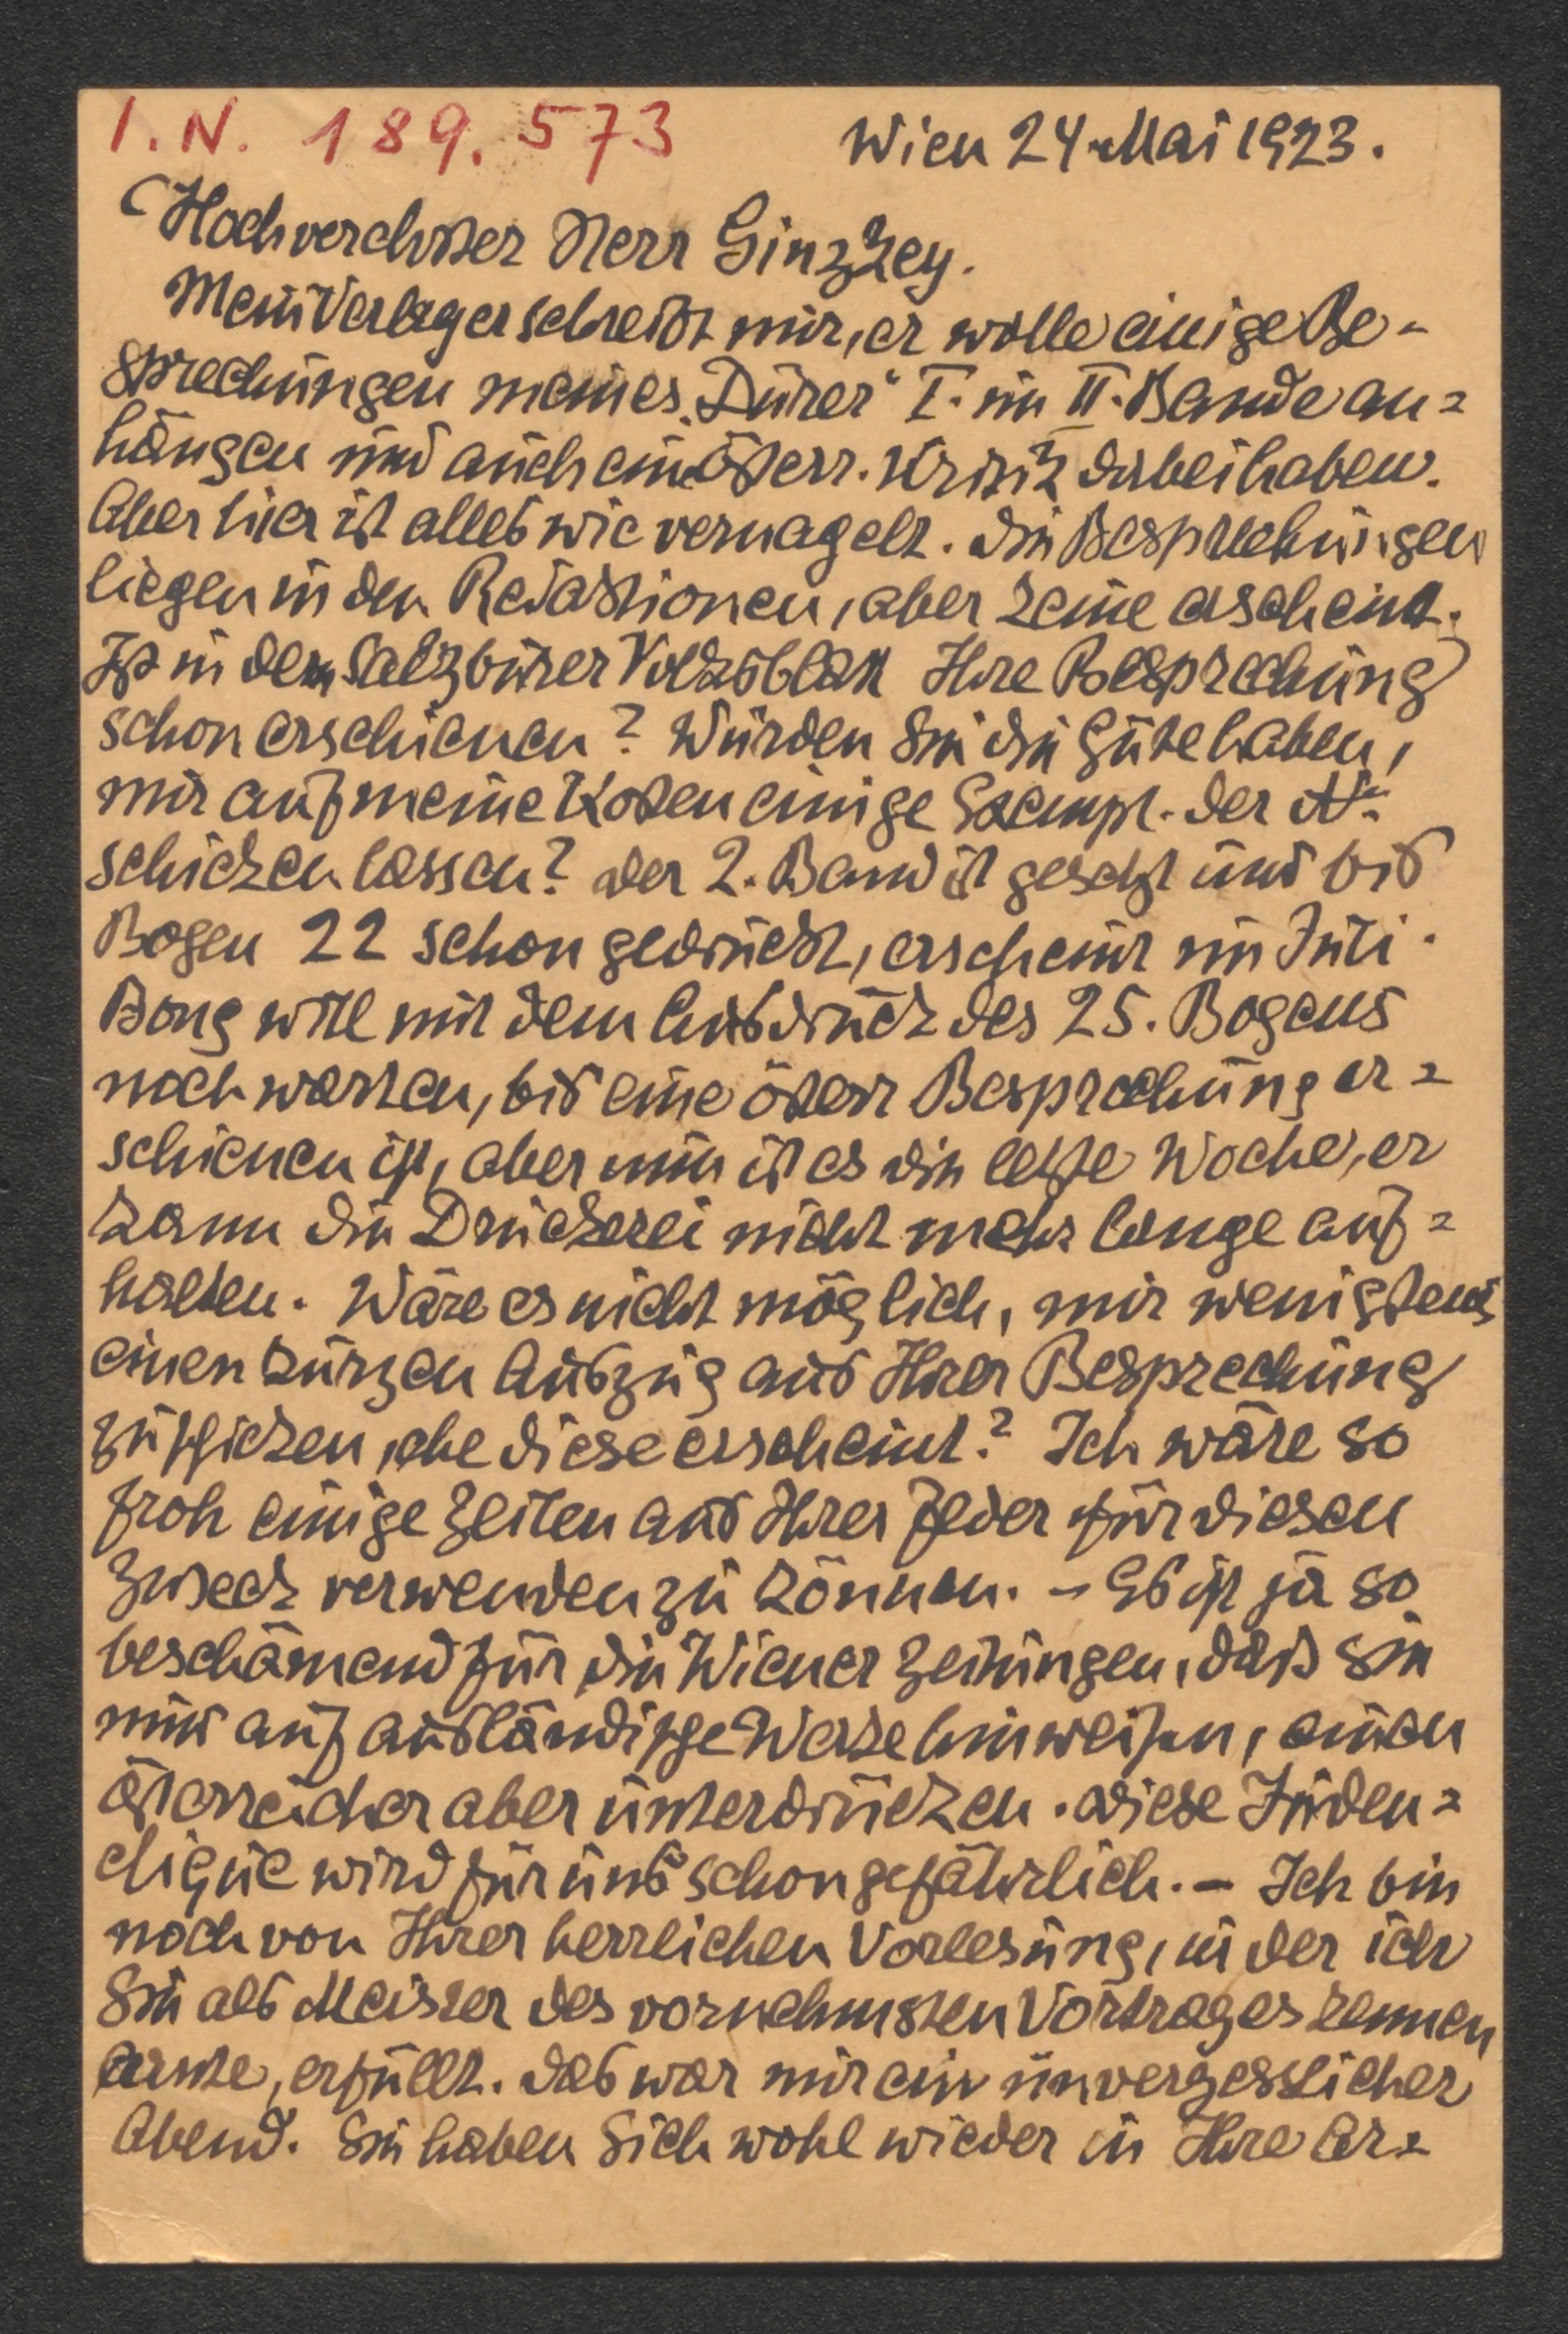 I.N. 189.573
Wien 24 Mai 1923.
Hochverehrter Herr Ginzkey.
Mein Verleger schreibt mir, er wolle einige Be-
sprechungen meines „Dürer“ I. im II. Bande an=
hängen und auch eine österr. Kritik dabei haben.
Aber hier ist alles wie vernagelt. Die Besprechungen
liegen in den Redaktionen, aber keine erscheint.
Ist in dem Salzburer Volksblatt Ihre Besprechung
schon erschienen? Würden Sie die Güte haben,
mir auf meine Kosten einige Exempl. der Nr.
schicken lassen? Der 2. Band ist gesetzt und bis
Bogen 22 schon gedruckt, erscheint im Juli.
Bong will mit dem Ausdruck des 25. Bogens
noch warten, bis eine österr Besprechung er=
schienen ist, aber nun ist es die letzte Woche, er
kann die Druckerei nicht mehr lange auf=
halten. Wäre es nicht möglich, mir wenigstens
einen kurzen Auszug aus Ihrer Besprechung
zuschicken, ehe diese erscheint? Ich wäre so
froh einige Zeilen aus Ihrer Feder für diesen
Zweck verwenden zu können. – Es ist ja so
beschämend für die Wiener Zeitungen, daß sie
nur auf ausländische Werke hinweisen, einen
Österreicher aber unterdrücken. Diese Juden=
clique wird für uns schon gefährlich. – Ich bin
noch von Ihrer herrlichen Vorlesung, in der ich
Sie als Meister des vornehmsten Vortrages kennen
lernte, erfüllt. Das war mir ein unvergesslicher
Abend. Sie haben Sich wohl wieder in Ihre Ar=